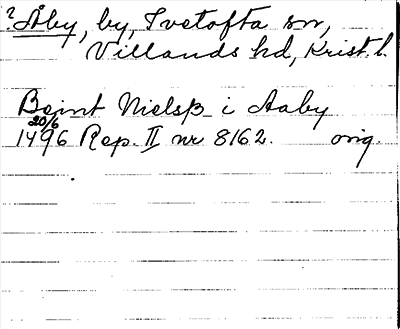 ? Åby, by, Ivetofta sn,
Villands hd, Krist. l.
Beint Nielsß i Aaby
20/6
1496 Rep. II nr 8162. orig.